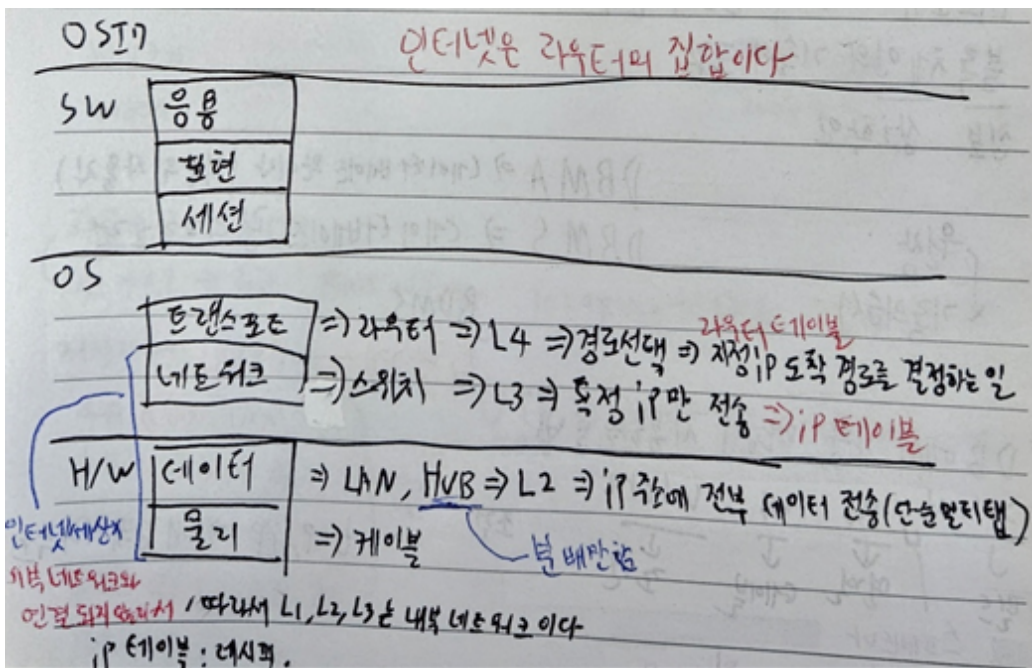 OSI7
인터넷은 라우터의 집합이다
SW 응용
표현
세션
OS
트랜스포트 => 라우터 => L4 => 경로선택 => 지정ip 도착 경로를 결정하는 일
라우터 테이블
네트워크 => 스위치 => L3 => 특정 ip만 전송 => ip 테이블
H/W 데이터 => LAN, HUB => L2 => ip 주소에 전부 데이터 전송(단순멀티탭)
물리 => 케이블
분배만함
인터넷세상X
외부 네트워크와
연결 되지 않아서, 따라서 L1, L2, L3는 내부 네트워크이다
ip 테이블 :